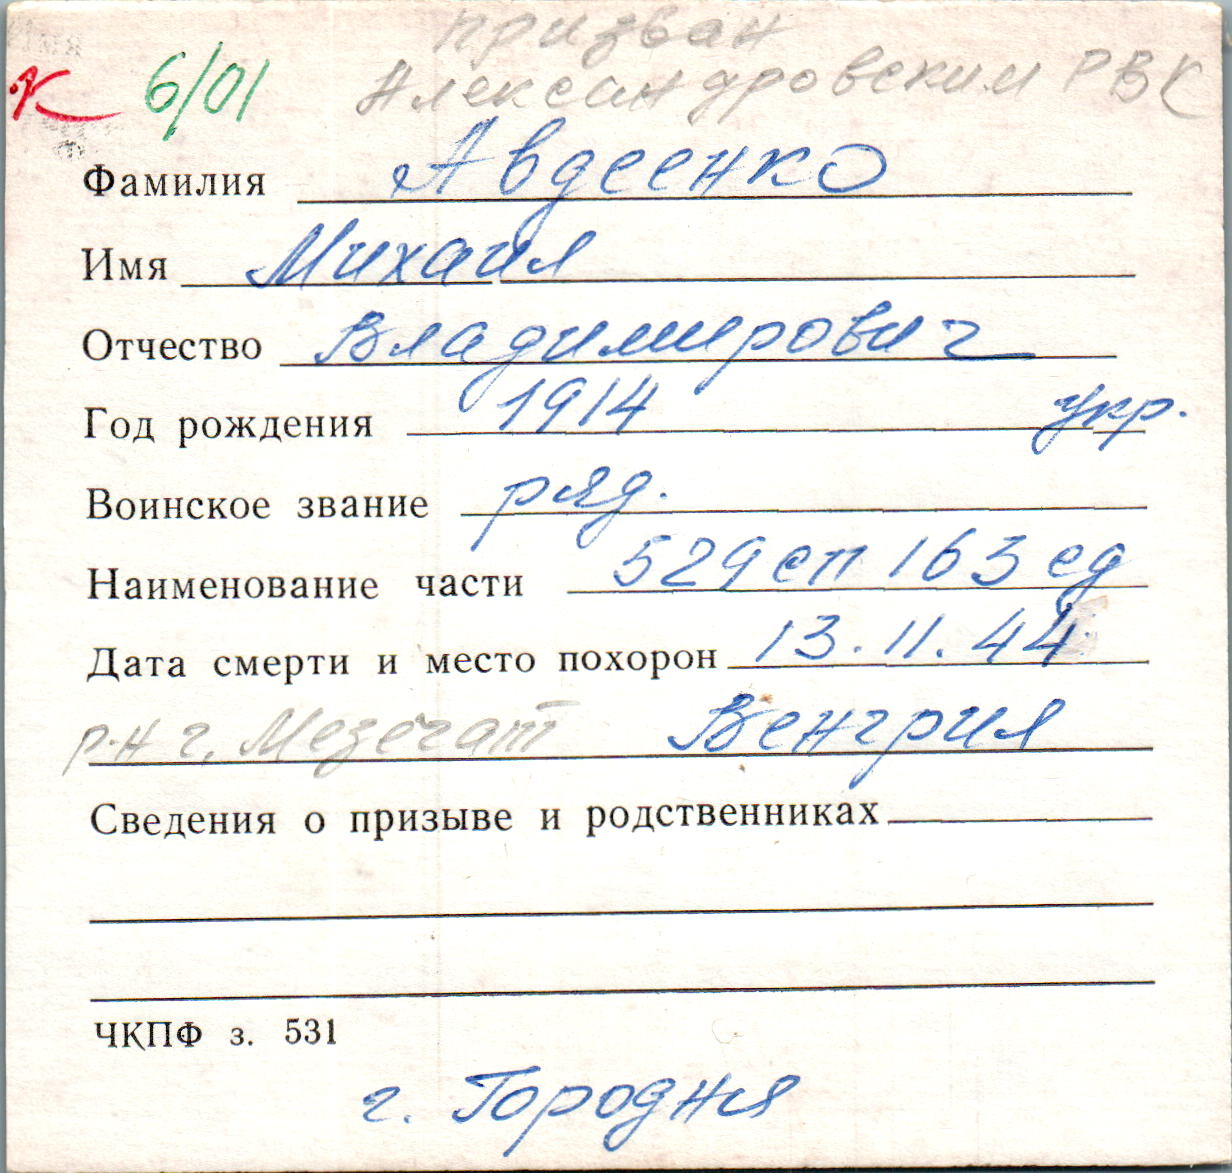 призван
К 6/01 Александровским РВК
Фамилия Авдеенко
Имя Михаил
Отчество Владимирович
Год рождения 1914 укр.
Воинское звание ряд.
Наименование части 529 сп 163 сд
Дата смерти и место похорон 13.11.44
р-н г. Мезечат Венгрия
Сведения о призыве и родственниках
ЧКПФ з. 531
г. Городня